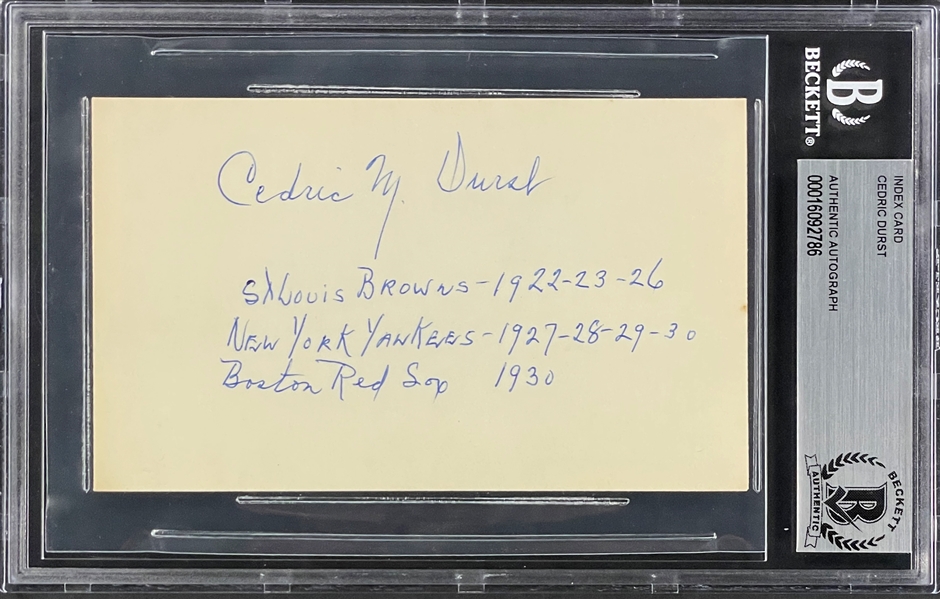 Cedric M. Durst
St Louis Browns-1922-23-26
New York Yankees-1927-28-29-30
Boston Red Sox 1930
BECKETT®
B
INDEX CARD
CEDRIC DURST
AUTHENTIC AUTOGRAPH
00016092786
BECKETT
AUTHENTIC